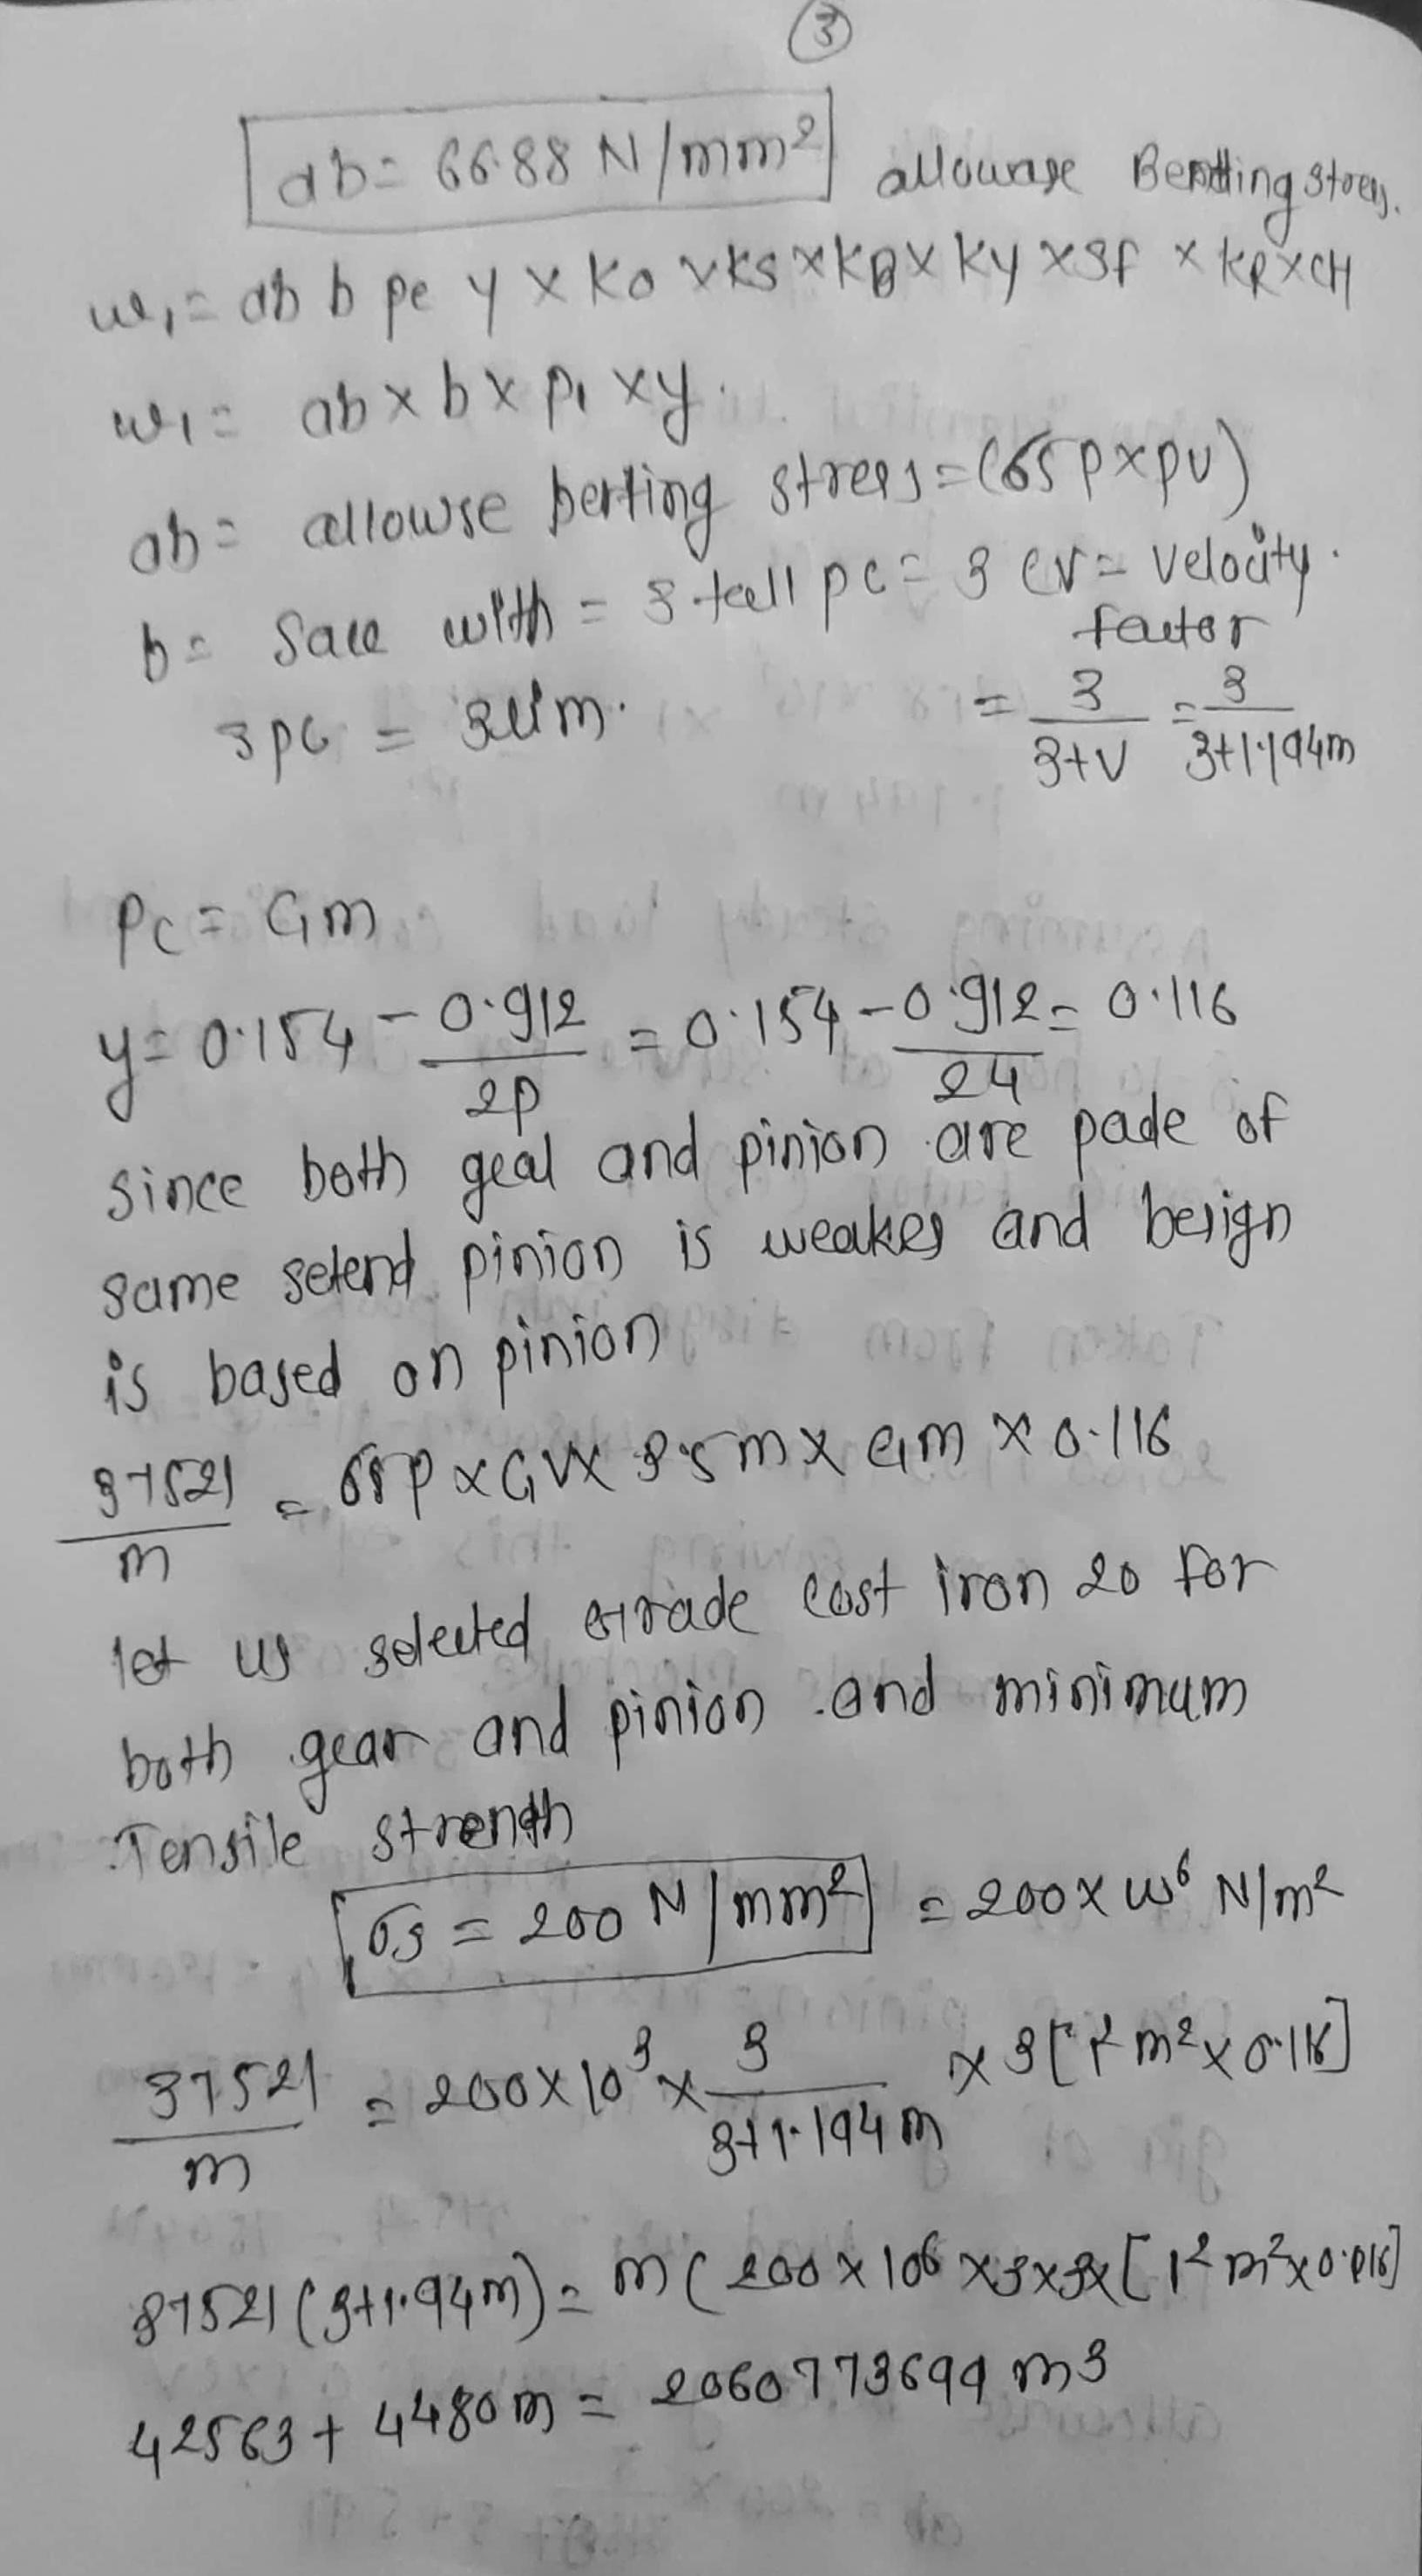 3
ab= 66.88 N/mm² allowase Bentting stress.
w₁= ab b pc y x Ko x Ks x KB x Ky x Sf x KR x CH
w₁= ab x b x p₁ x y.
ab= allowse berting stress = (6s p x pv)
b= Sace with = 3 tall pc = 3 Cv= velocity.
factor
3pc = 3llm. = 3/3+V = 3/3+1.194m
Pc = Gm
y= 0.154 - 0.912/2p = 0.154 - 0.912/24 = 0.116
since both geal and pinion are pade of
same setend pinion is weakes and besign
is based on pinion
37521/m = 6sp x GVx 3.5m x Gm x 0.116
let us selected Grade cost iron 20 for
both gear and pinion and minimum
Tensile strength
σs = 200 N/mm² = 200 x 10⁶ N/m²
37521/m = 200 x 10³ x 3/3+1.194m x 3[1² m² x 0.116]
37521 (3+1.94m) = m ( 200 x 106 x3x3x [1² m² x 0.016]
42563 + 4480m = 2060773699 m3